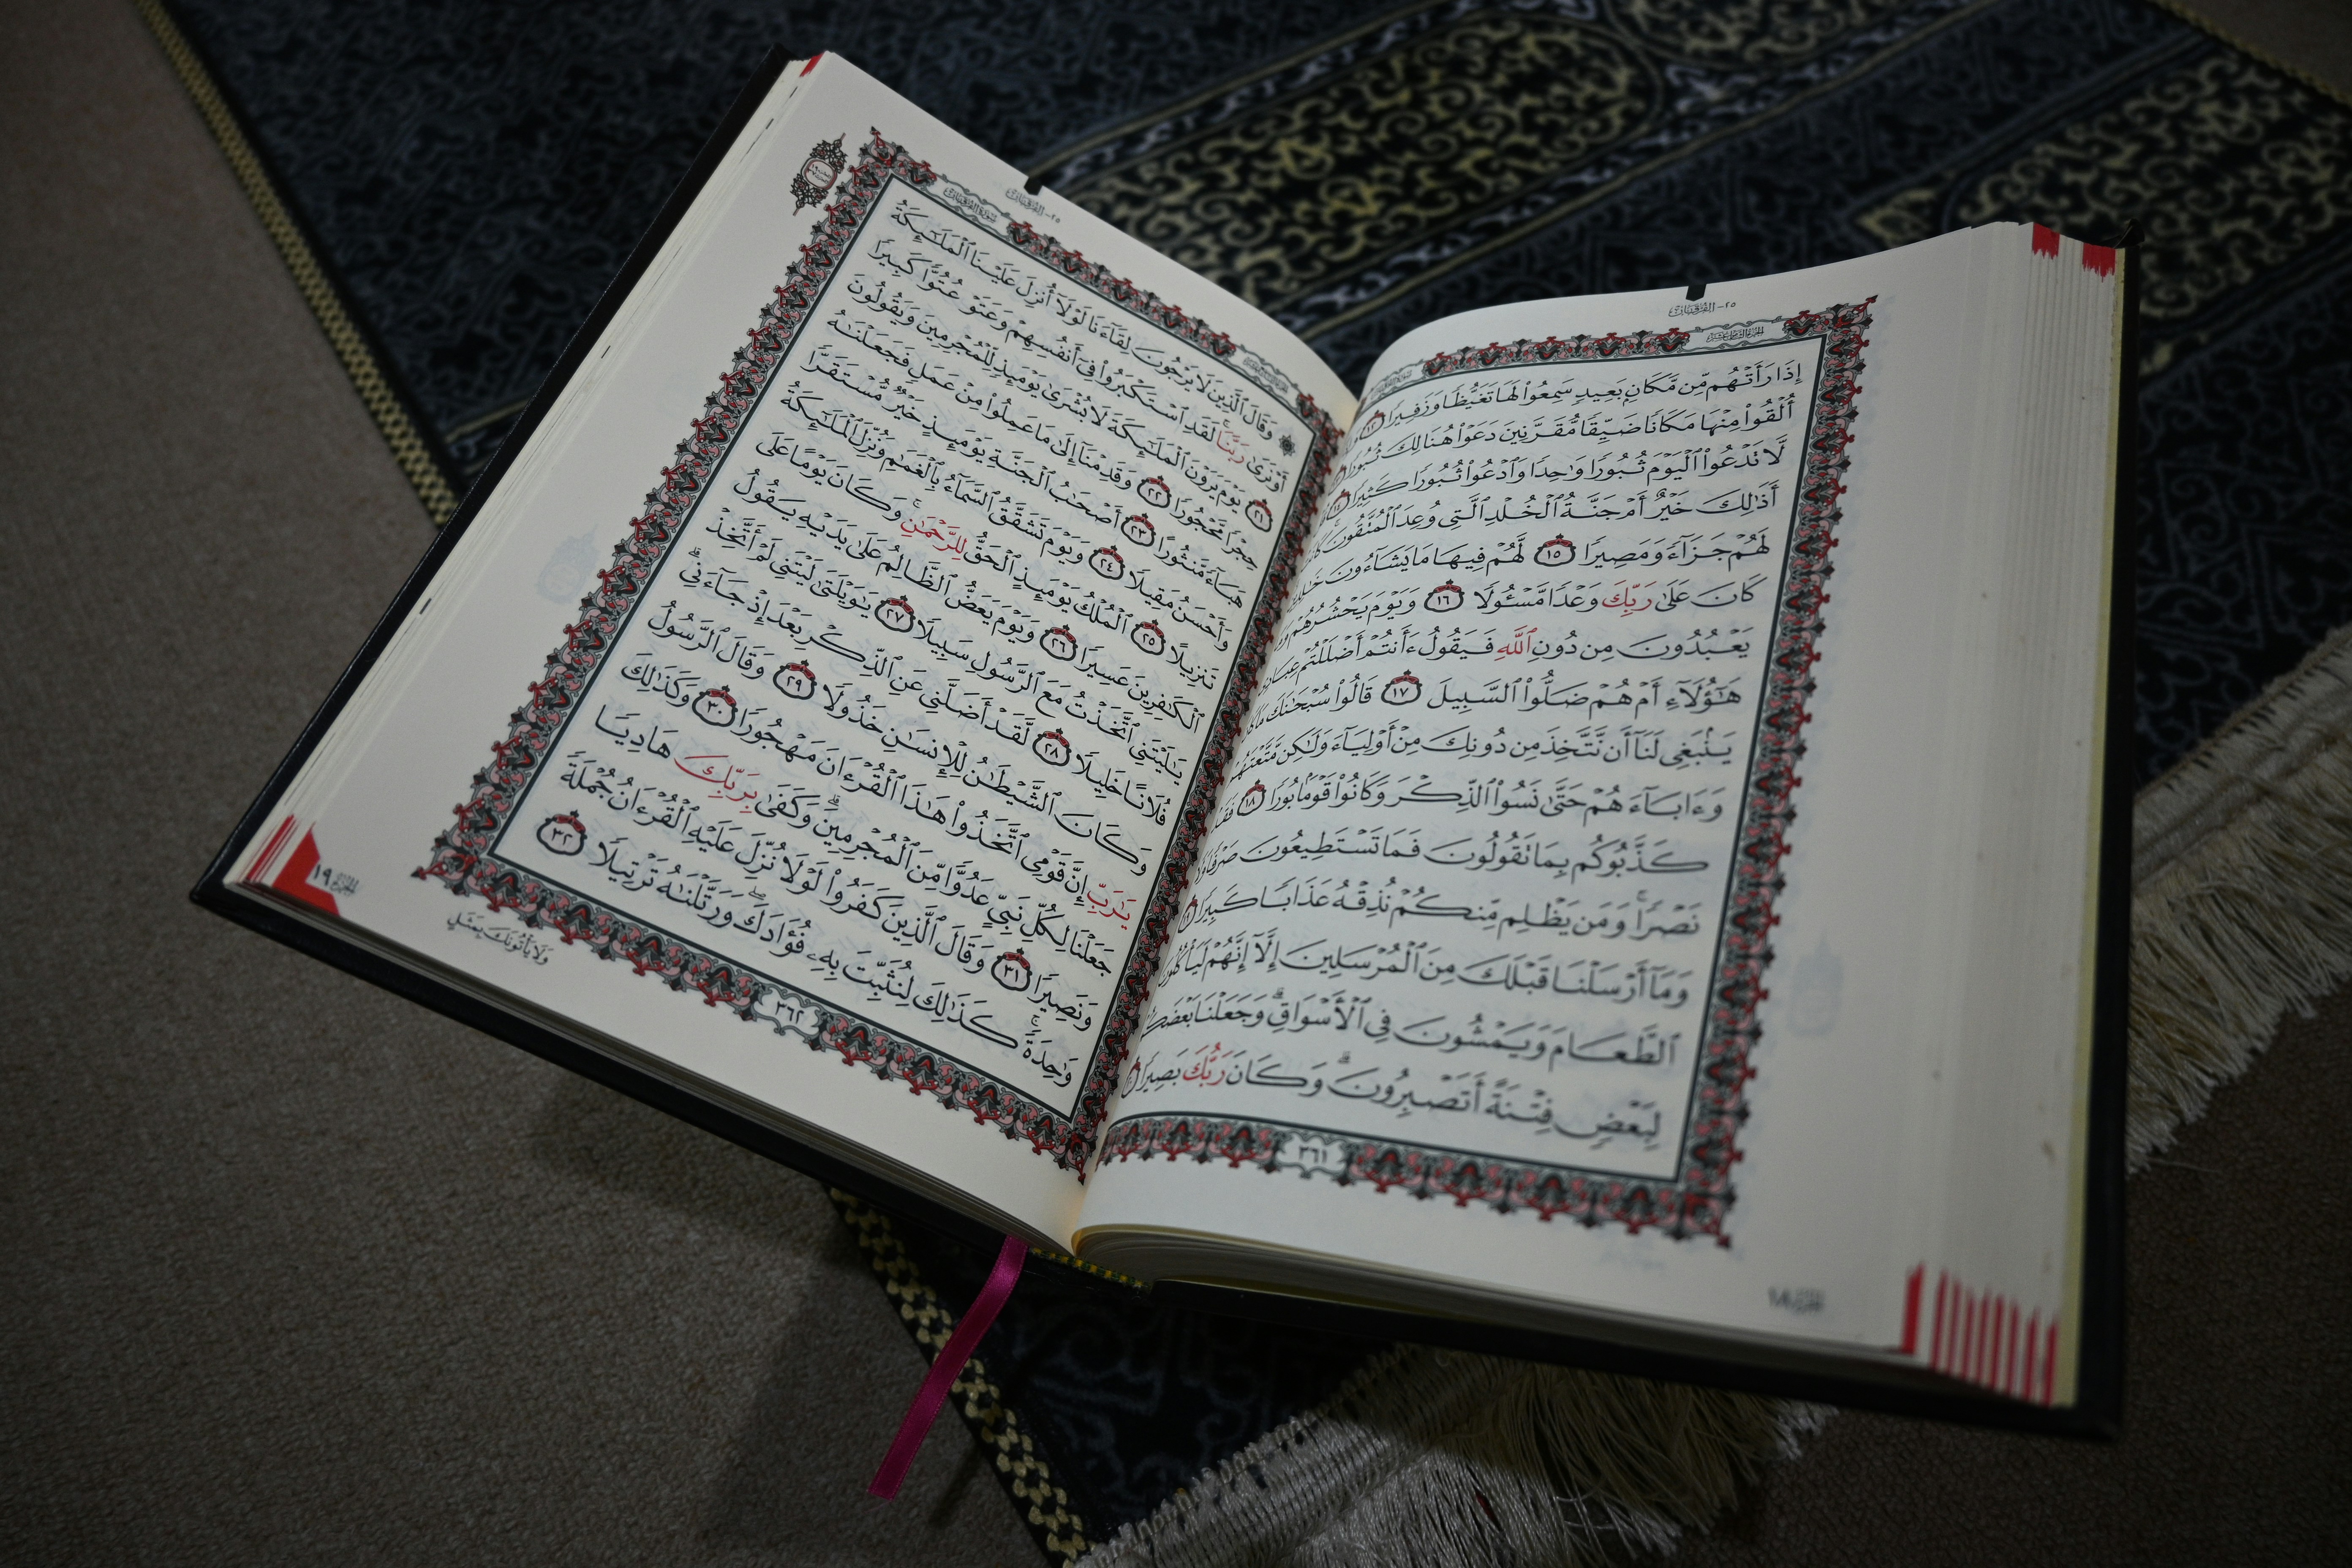 ٢٥- الفرقان
الجزء الثامن عشر
إِذَا رَأَتْهُم مِّن مَّكَانٍ بَعِيدٍ سَمِعُوا۟ لَهَا تَغَيُّظًا وَزَفِيرًا ١٢
أُلْقُوا۟ مِنْهَا مَكَانًا ضَيِّقًا مُّقَرَّنِينَ دَعَوْا۟ هُنَالِكَ ثُبُورًا
لَّا تَدْعُوا۟ ٱلْيَوْمَ ثُبُورًا وَٰحِدًا وَٱدْعُوا۟ ثُبُورًا كَثِيرًا ١٤
أَذَٰلِكَ خَيْرٌ أَمْ جَنَّةُ ٱلْخُلْدِ ٱلَّتِى وُعِدَ ٱلْمُتَّقُونَ ۚ
لَهُمْ جَزَآءً وَمَصِيرًا ١٥ لَّهُمْ فِيهَا مَا يَشَآءُونَ
كَانَ عَلَىٰ رَبِّكَ وَعْدًا مَّسْـُٔولًا ١٦ وَيَوْمَ يَحْشُرُهُمْ
يَعْبُدُونَ مِن دُونِ ٱللَّهِ فَيَقُولُ ءَأَنتُمْ أَضْلَلْتُمْ
هَـٰٓؤُلَآءِ أَمْ هُمْ ضَلُّوا۟ ٱلسَّبِيلَ ١٧ قَالُوا۟ سُبْحَـٰنَكَ
يَنۢبَغِى لَنَآ أَن نَّتَّخِذَ مِن دُونِكَ مِنْ أَوْلِيَآءَ وَلَـٰكِن مَّتَّعْتَهُمْ
وَءَابَآءَهُمْ حَتَّىٰ نَسُوا۟ ٱلذِّكْرَ وَكَانُوا۟ قَوْمًۢا بُورًا ١٨
كَذَّبُوكُم بِمَا تَقُولُونَ فَمَا تَسْتَطِيعُونَ صَرْفًا
نَصْرًا ۚ وَمَن يَظْلِم مِّنكُمْ نُذِقْهُ عَذَابًا كَبِيرًا ١٩
وَمَآ أَرْسَلْنَا قَبْلَكَ مِنَ ٱلْمُرْسَلِينَ إِلَّآ إِنَّهُمْ لَيَأْكُلُونَ
ٱلطَّعَامَ وَيَمْشُونَ فِى ٱلْأَسْوَاقِ ۗ وَجَعَلْنَا بَعْضَكُمْ
لِبَعْضٍ فِتْنَةً أَتَصْبِرُونَ ۗ وَكَانَ رَبُّكَ بَصِيرًا
٣٦١
الجزء ١٨
٢٥- الفرقان
سورة الفرقان
۞ وَقَالَ ٱلَّذِينَ لَا يَرْجُونَ لِقَآءَنَا لَوْلَآ أُنزِلَ عَلَيْنَا ٱلْمَلَـٰٓئِكَةُ
أَوْ نَرَىٰ رَبَّنَا ۗ لَقَدِ ٱسْتَكْبَرُوا۟ فِىٓ أَنفُسِهِمْ وَعَتَوْ عُتُوًّا كَبِيرًا
٢١ يَوْمَ يَرَوْنَ ٱلْمَلَـٰٓئِكَةَ لَا بُشْرَىٰ يَوْمَئِذٍ لِّلْمُجْرِمِينَ وَيَقُولُونَ
حِجْرًا مَّحْجُورًا ٢٢ وَقَدِمْنَآ إِلَىٰ مَا عَمِلُوا۟ مِنْ عَمَلٍ فَجَعَلْنَـٰهُ
هَبَآءً مَّنثُورًا ٢٣ أَصْحَـٰبُ ٱلْجَنَّةِ يَوْمَئِذٍ خَيْرٌ مُّسْتَقَرًّا
وَأَحْسَنُ مَقِيلًا ٢٤ وَيَوْمَ تَشَقَّقُ ٱلسَّمَآءُ بِٱلْغَمَـٰمِ وَنُزِّلَ ٱلْمَلَـٰٓئِكَةُ
تَنزِيلًا ٢٥ ٱلْمُلْكُ يَوْمَئِذٍ ٱلْحَقُّ لِلرَّحْمَـٰنِ ۚ وَكَانَ يَوْمًا عَلَى
ٱلْكَـٰفِرِينَ عَسِيرًا ٢٦ وَيَوْمَ يَعَضُّ ٱلظَّالِمُ عَلَىٰ يَدَيْهِ يَقُولُ
يَـٰلَيْتَنِى ٱتَّخَذْتُ مَعَ ٱلرَّسُولِ سَبِيلًا ٢٧ يَـٰوَيْلَتَىٰ لَيْتَنِى لَمْ أَتَّخِذْ
فُلَانًا خَلِيلًا ٢٨ لَّقَدْ أَضَلَّنِى عَنِ ٱلذِّكْرِ بَعْدَ إِذْ جَآءَنِى ۗ
وَكَانَ ٱلشَّيْطَـٰنُ لِلْإِنسَـٰنِ خَذُولًا ٢٩ وَقَالَ ٱلرَّسُولُ
يَـٰرَبِّ إِنَّ قَوْمِى ٱتَّخَذُوا۟ هَـٰذَا ٱلْقُرْءَانَ مَهْجُورًا ٣٠ وَكَذَٰلِكَ
جَعَلْنَا لِكُلِّ نَبِىٍّ عَدُوًّا مِّنَ ٱلْمُجْرِمِينَ ۗ وَكَفَىٰ بِرَبِّكَ هَادِيًا
وَنَصِيرًا ٣١ وَقَالَ ٱلَّذِينَ كَفَرُوا۟ لَوْلَا نُزِّلَ عَلَيْهِ ٱلْقُرْءَانُ جُمْلَةً
وَٰحِدَةً ۚ كَذَٰلِكَ لِنُثَبِّتَ بِهِۦ فُؤَادَكَ ۖ وَرَتَّلْنَـٰهُ تَرْتِيلًا ٣٢
٣٦٢
وَلَا يَأْتُونَكَ بِمَثَلٍ
الجزء ١٩